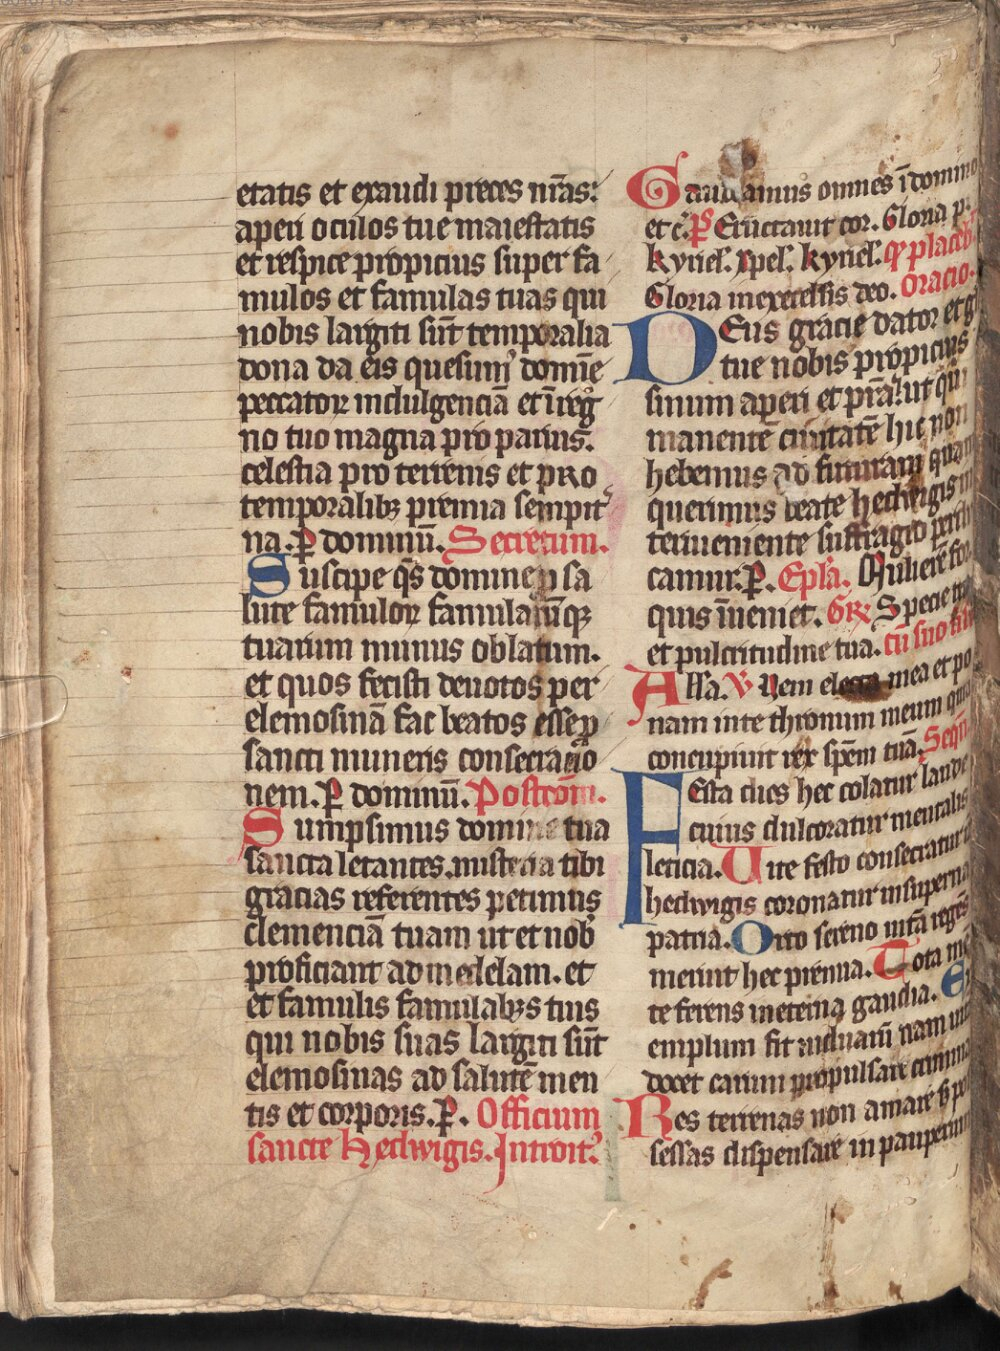 etatis et exaudi preces nr̄as:
aperi oculos tue maiestatis
et respice propicius super fa
mulos et famulas tuas qui
nobis largiti sūt temporalia
dona da eis quesum᷒ domīe
peccatoꝝ indulgenciā et ī reg
no tuo magna pro paruis.
celestia pro terrenis et pro
temporalibꝫ premia sempit̾
na. ꝑ dominū. Secretum.
Suscipe q̄s domine ꝓ sa
lute famuloꝝ famularūqꝫ
tuarum munus oblatum.
et quos fecisti deuotos per
elemosinā fac beatos esse ꝑ
sancti muneris consecracio
nem. ꝑ dominū. Postcōm.
Sumpsimus domine tua
sancta letantes misteria tibi
gracias referentes petimus
clemenciā tuam ut et nob̾
proficiant ad medelam. et
et famulis famulabꝫs tuis
qui nobis suas largiti sūt
elemosinas ad salutē men
tis et corporis. ꝑ. Officium
sancte Hedwigis. Introit᷒.
Gaudeamus omnes ī domino
et c̄. p̄s Eructauit cor. Gloria p.
kyriel̄. xpel̄. kyriel̄.
Gloria in excelsis deo. Oracio.
Deus gracie dator et
tue nobis propicius
sinum aperi et prā. ut
manentē ciuitatē hic non
hebemus ad futuram quam
querimus beate Hedwigis
terueniente suffragio
camur. ꝑ. Epl̄a. Mulierē for
quis īueniet. Gr̄. Specie
et pulcritudine tua. cū suo
All̄a. V Veni electa mea et po
nam in te thronum meum
concupiuit rex spēm tuā. Seqn̄
Festa dies hec colatur laude
cuius dulcoratur mentalis
leticia. Uite festo consecratur
hedwigis coronatur in superna
patria. Orto sereno
meruit hec premia. Tota
te ferens in eterna gaudia.
emplum fit viduarū nam
docet carnem propulsare
Res terrenas non amare
sessas dispensare in pauperum